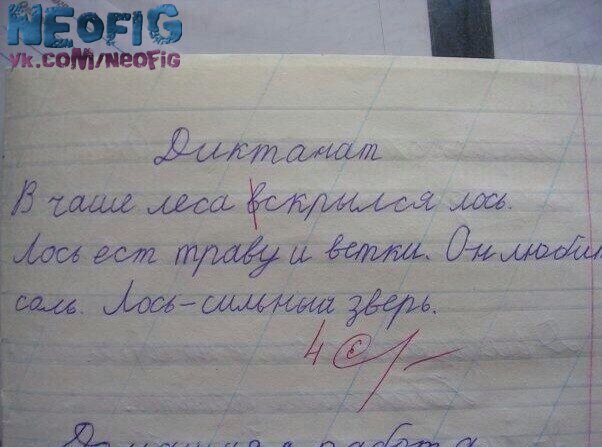 NEOFIG
vk.com/neofig
Диктанат
В чаше леса вскрылся лось.
Лось ест траву и ветки. Он любит
соль. Лось - сильный зверь.
4
Домашняя работа